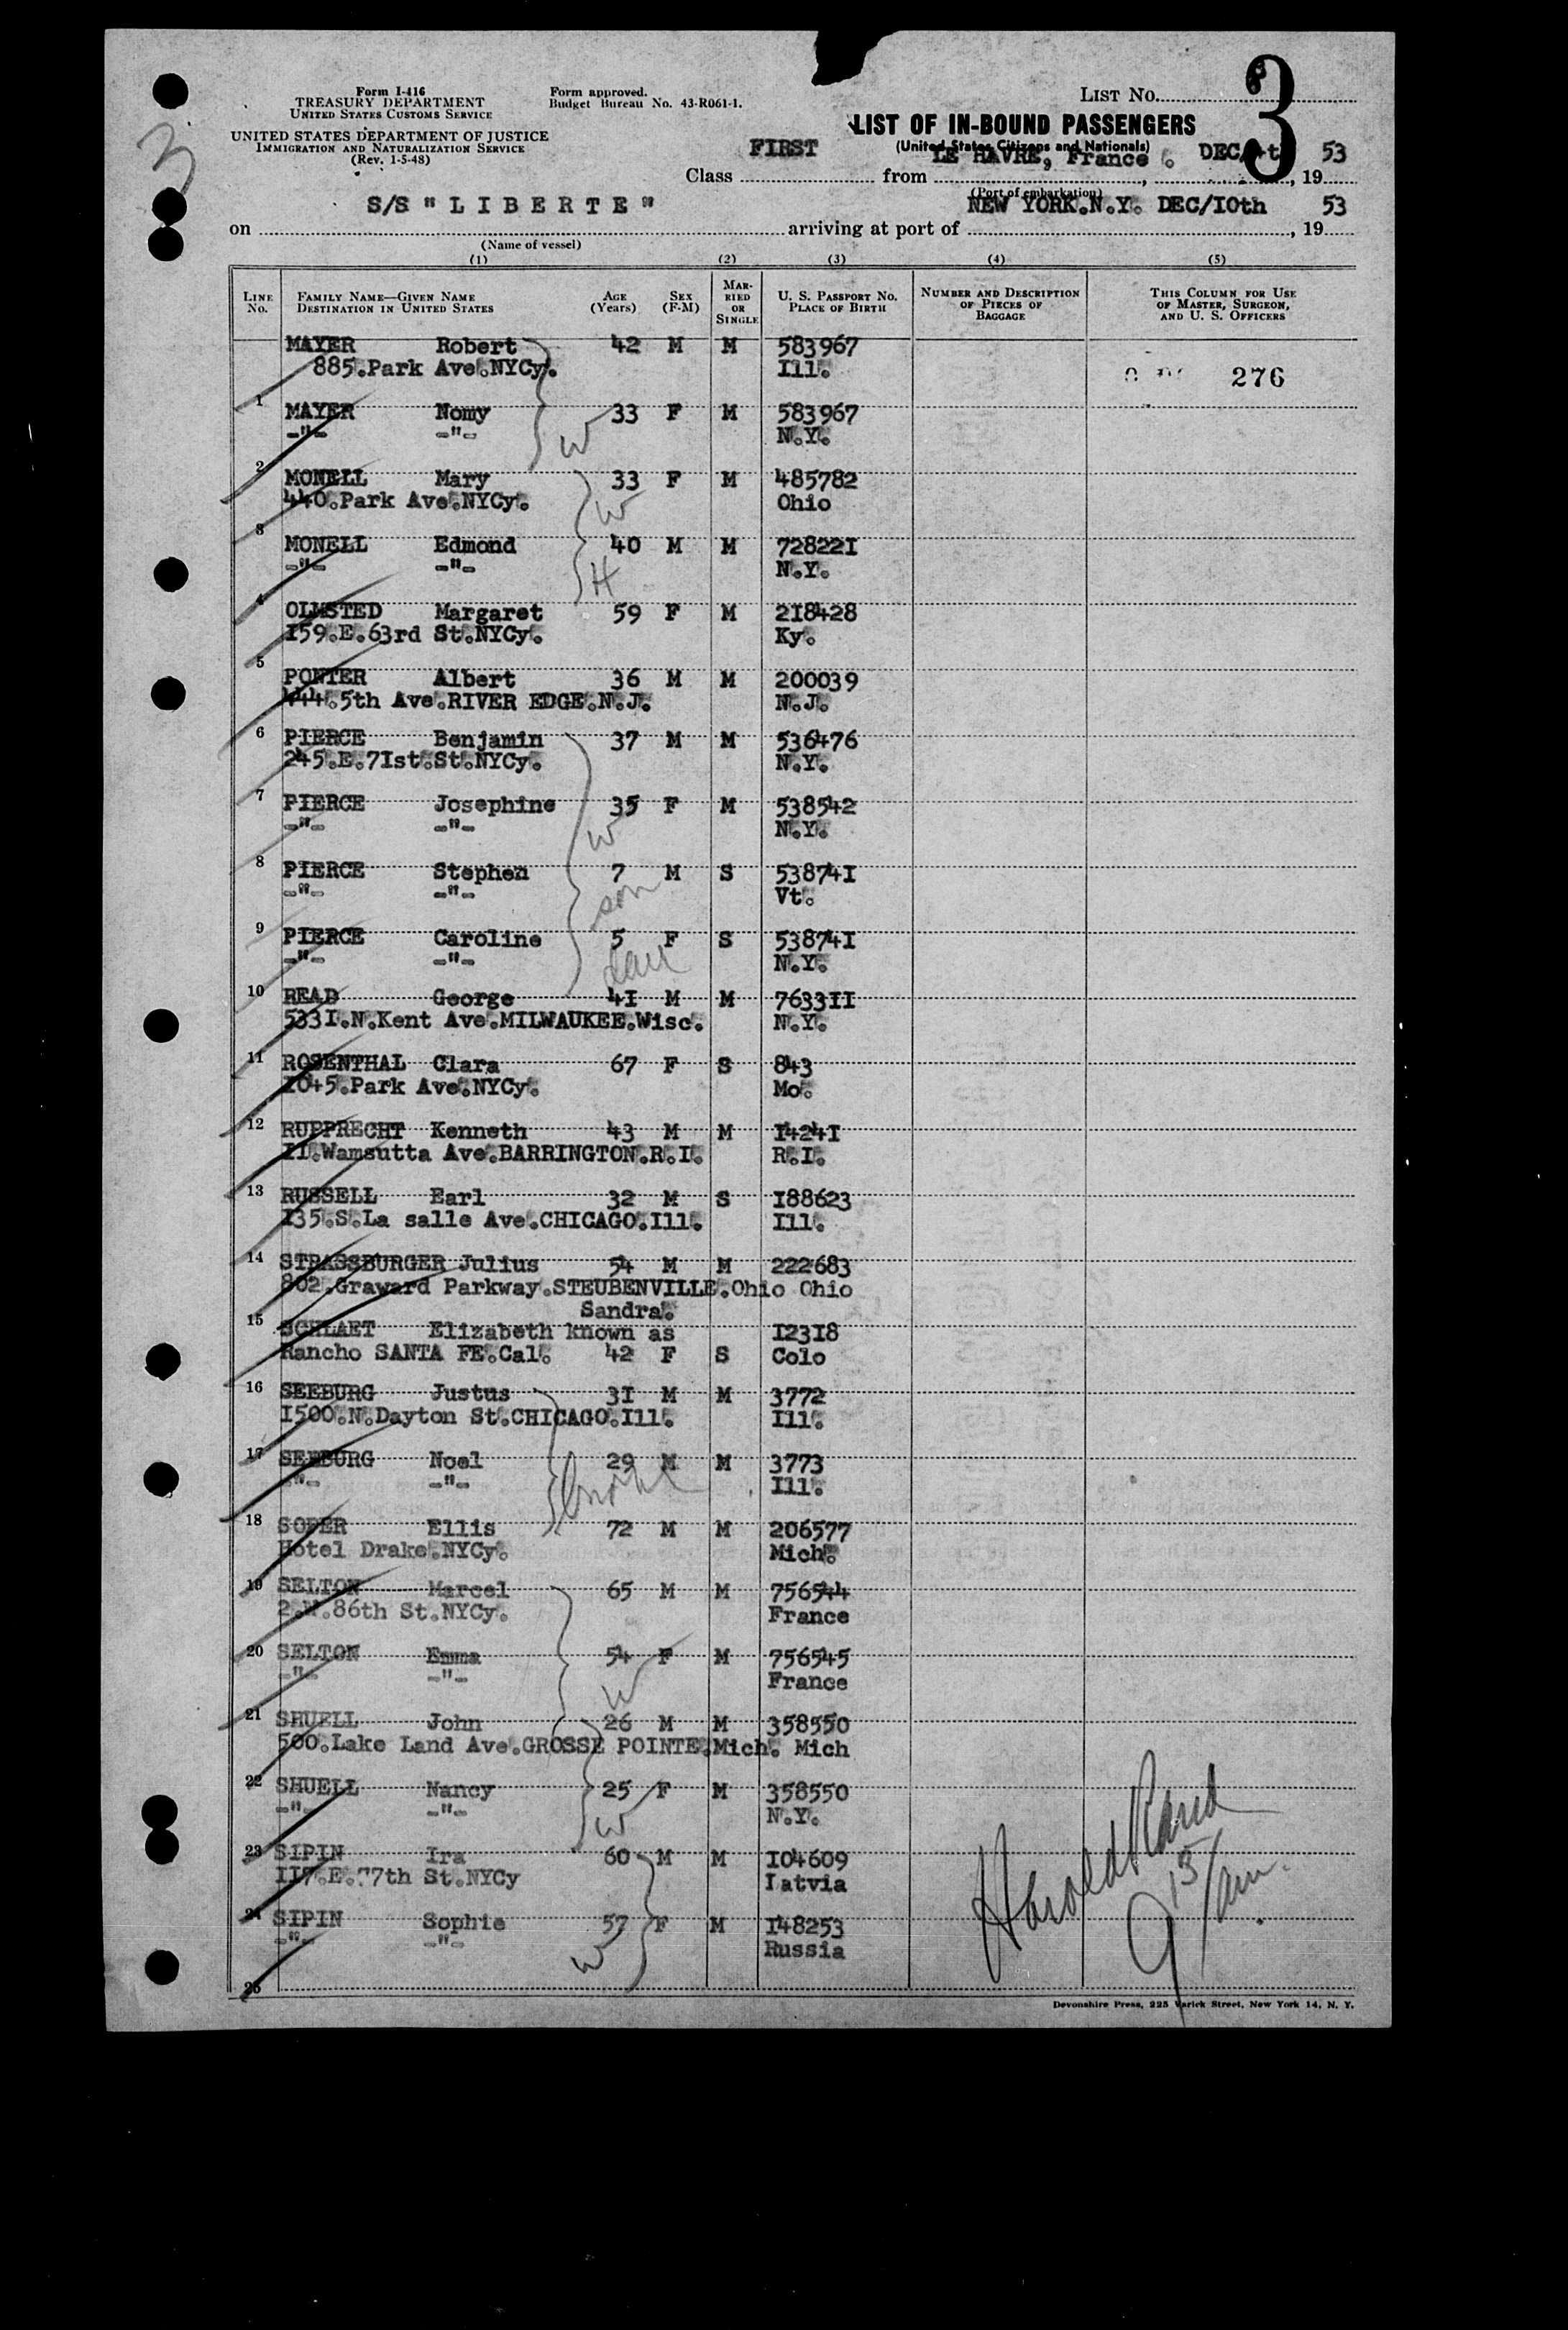 3
Form I-416
TREASURY DEPARTMENT
UNITED STATES CUSTOMS SERVICE
UNITED STATES DEPARTMENT OF JUSTICE
IMMIGRATION AND NATURALIZATION SERVICE
(Rev. 1-5-48)
Form approved.
Budget Bureau No. 43-R061-1.
LIST NO. 3
LIST OF IN-BOUND PASSENGERS
(United States Citizens and Nationals)
Class FIRST from LE HAVRE, France. DEC/4th, 19 53
(Port of embarkation)
on S/S "LIBERTE" arriving at port of NEW YORK.N.Y. DEC/I0th, 19 53
(Name of vessel)
(1) (2) (3) (4) (5)
LINE NO. FAMILY NAME—GIVEN NAME DESTINATION IN UNITED STATES AGE (Years) SEX (F-M) MARRIED OR SINGLE U. S. PASSPORT NO. PLACE OF BIRTH NUMBER AND DESCRIPTION OF PIECES OF BAGGAGE THIS COLUMN FOR USE OF MASTER, SURGEON, AND U. S. OFFICERS
MAYER Robert 42 M M 583967
885.Park Ave.NYCy. Ill. 276
1 MAYER Nomy 33 F M 583967
-"- -"- W N.Y.
2 MONELL Mary 33 F M 485782
440.Park Ave.NYCy. W Ohio
3 MONELL Edmond 40 M M 72822I
-"- -"- H N.Y.
4 OLMSTED Margaret 59 F M 2I8428
I59.E.63rd St.NYCy. Ky.
5 PONTER Albert 36 M M 200039
444.5th Ave.RIVER EDGE.N.J. N.J.
6 PIERCE Benjamin 37 M M 536476
245.E.7Ist.St.NYCy. N.Y.
7 PIERCE Josephine 35 F M 538542
-"- -"- W N.Y.
8 PIERCE Stephen 7 M S 53874I
-"- -"- son Vt.
9 PIERCE Caroline 5 F S 53874I
-"- -"- dau N.Y.
10 READ George 4I M M 7633II
533I.N.Kent Ave.MILWAUKEE.Wisc. N.Y.
11 ROSENTHAL Clara 67 F S 843
I045.Park Ave.NYCy. Mo.
12 RUPPRECHT Kenneth 43 M M I424I
II.Wamsutta Ave.BARRINGTON.R.I. R.I.
13 RUSSELL Earl 32 M S I88623
I35.S.La salle Ave.CHICAGO.Ill. Ill.
14 STRASSBURGER Julius 54 M M 222683
802.Graward Parkway.STEUBENVILLE.Ohio Ohio
Sandra.
15 SCHLAET Elizabeth known as I23I8
Rancho SANTA FE.Cal. 42 F S Colo
16 SEEBURG Justus 3I M M 3772
I500.N.Dayton St.CHICAGO.Ill. Ill.
17 SEEBURG Noel 29 M M 3773
-"- -"- Ill.
18 SOPER Ellis 72 M M 206577
Hotel Drake.NYCy. Mich.
19 SELTON Marcel 65 M M 756544
2.W.86th St.NYCy. France
20 SELTON Emma 54 F M 756545
-"- -"- W France
21 SHUELL John 26 M M 358550
500.Lake Land Ave.GROSSE POINTE.Mich. Mich
22 SHUELL Nancy 25 F M 358550
-"- -"- W N.Y.
23 SIPIN Ira 60 M M I04609
II7.E.77th St.NYCy Latvia
24 SIPIN Sophie 57 F M I48253
-"- -"- W Russia
25
Harold Rand
9 15/am.
Devonshire Press, 225 Varick Street, New York 14, N. Y.